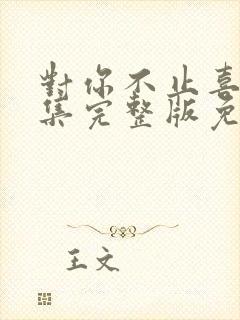 對你不止喜
集完整版免
王文